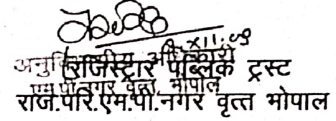 अनुविभागीय अधिकारी
रजिस्ट्रार पब्लिक ट्रस्ट
एम.पी.नगर वृत्त भोपाल
राज.परि.एम.पी.नगर वृत्त भोपाल